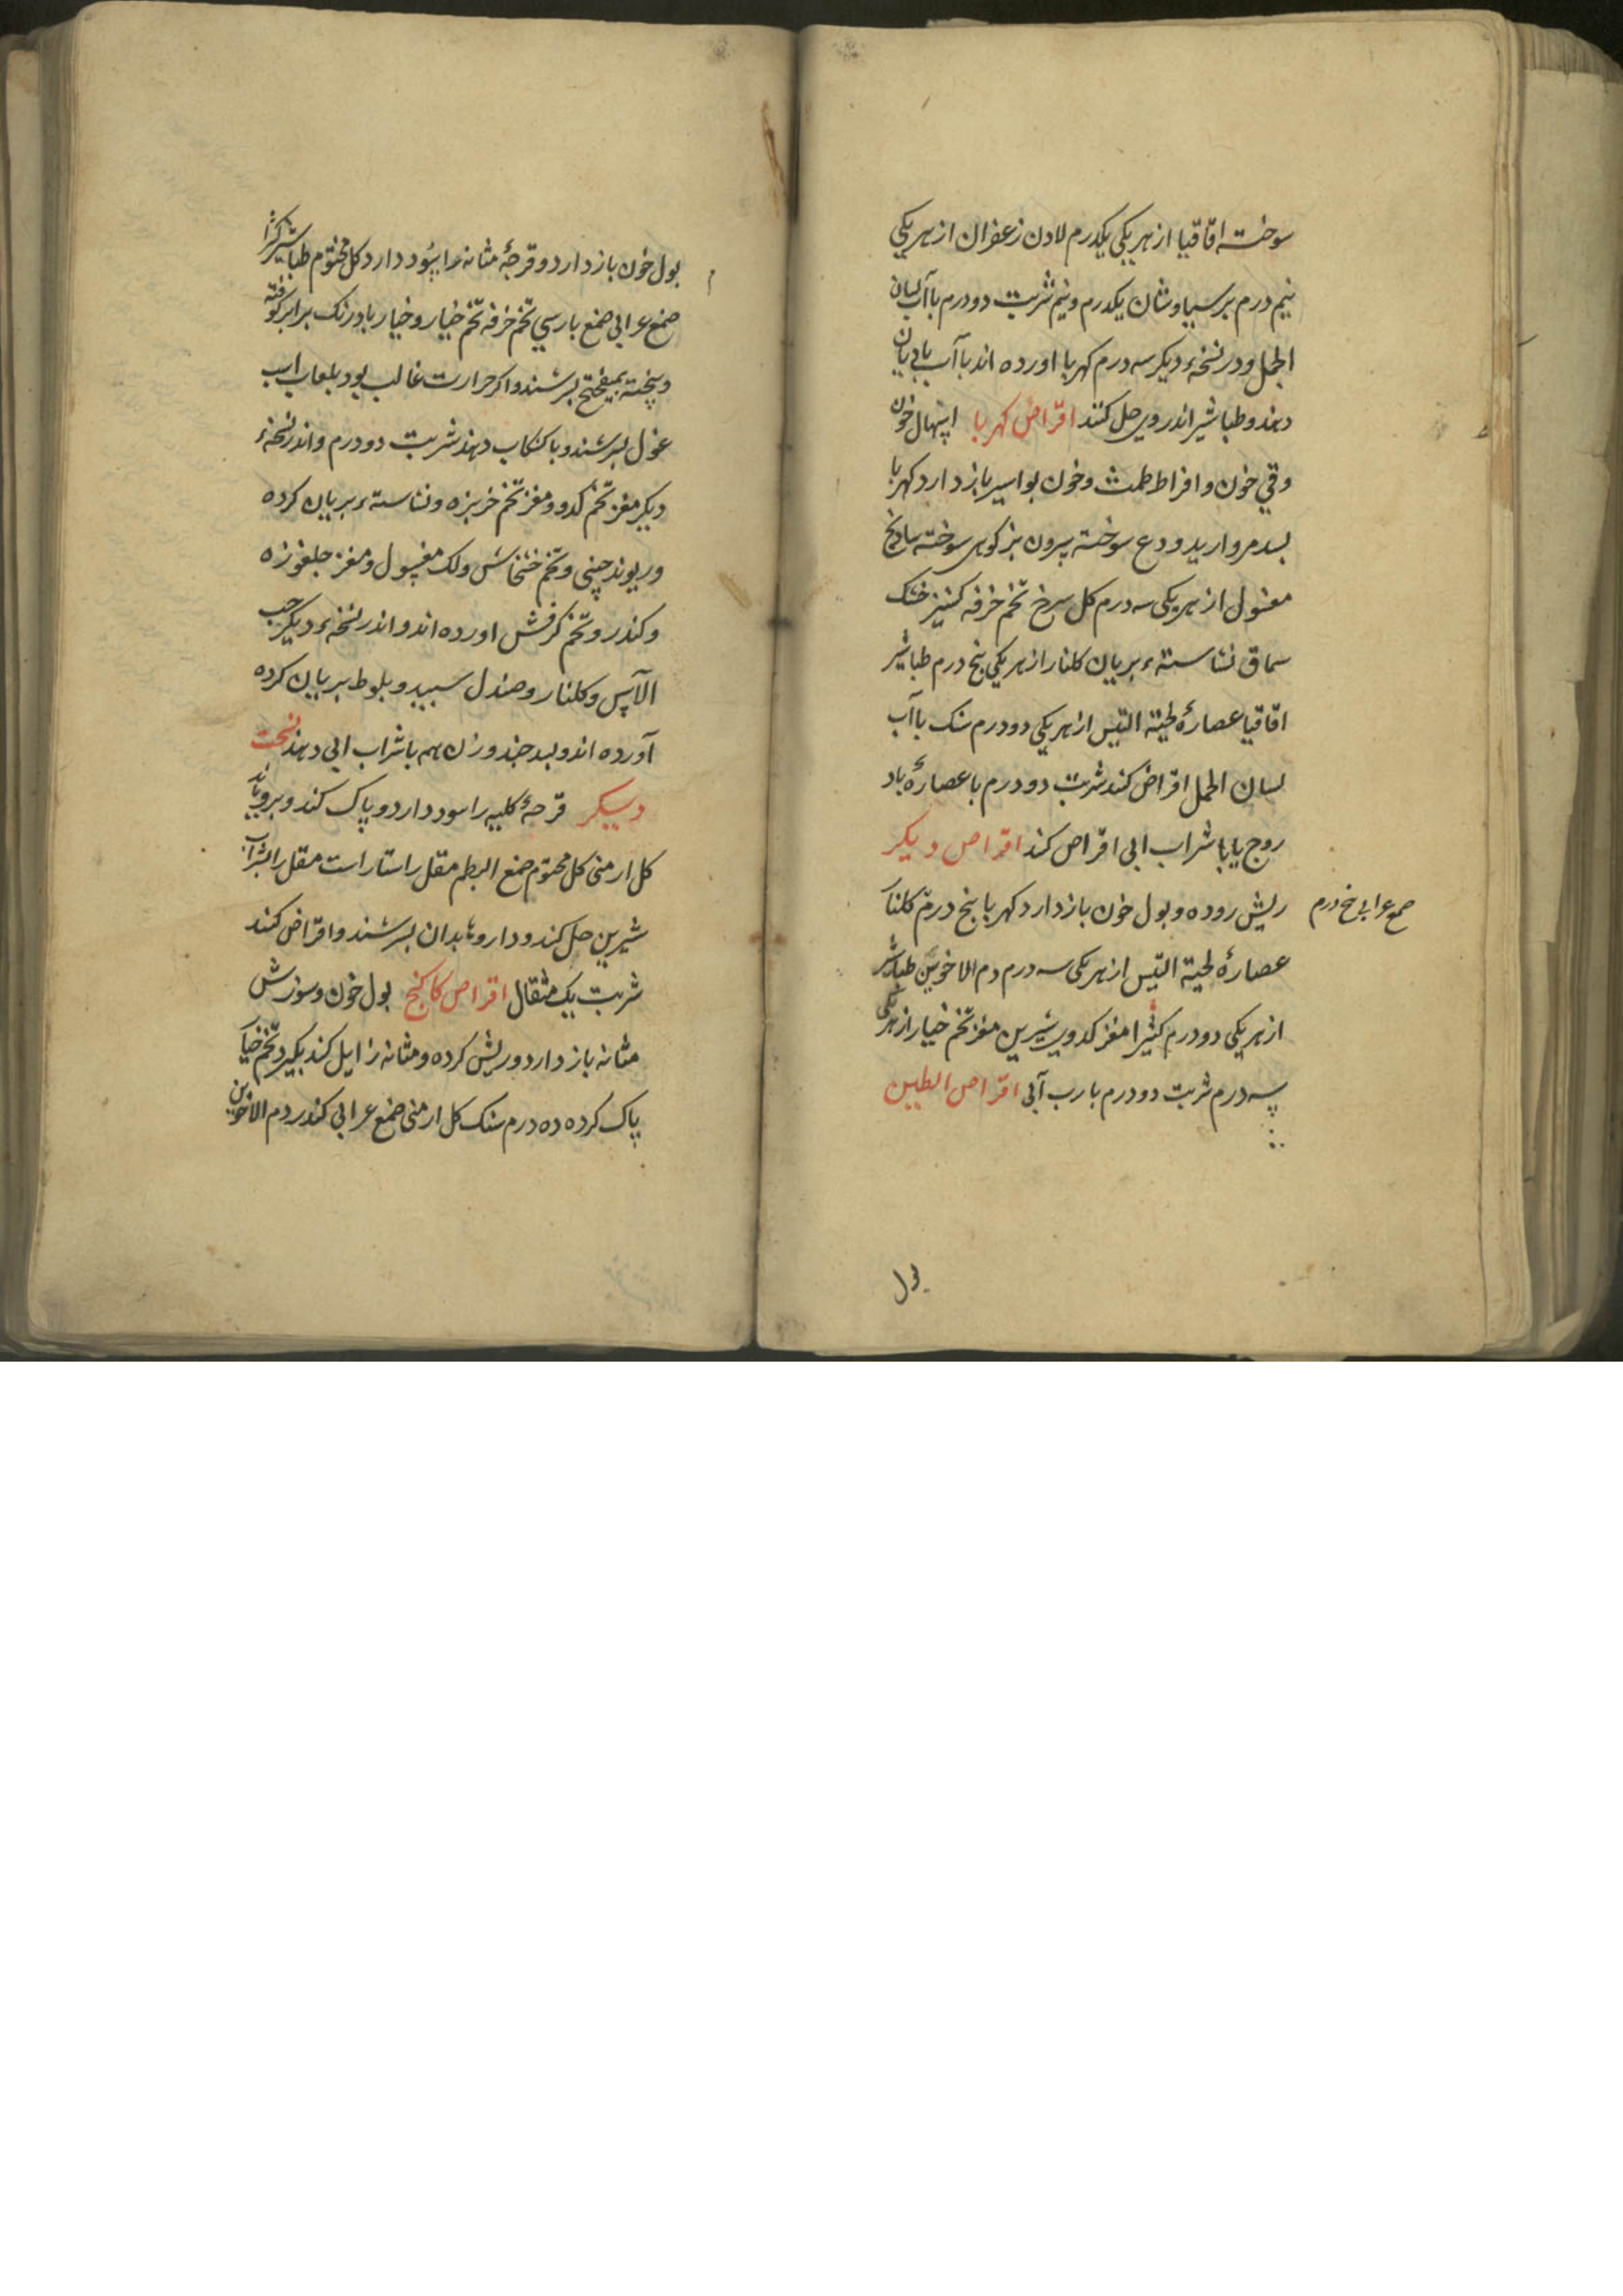 سوخته اقاقیا از هر یکی یکدرم لادن زعفران از هر یکی
نیم درم برسیاوشان یکدرم و نیم شربت دو درم با آب لسان
الحمل و در نسخهٔ دیکر سه درم کهربا اورده اند با آب
دهند و طباشیر اندر وی حل کنند اقراض کهربا اسهال خون
وقی خون و افراط طمث و خون بواسیر باز دارد کهربا
بسد مروارید ودع سوخته سرون بز کوهی سوخته سادنج
مغسول از هر یکی سه درم کل سرخ تخم خرفه کشنیز خشک
سماق نشاستهٔ بریان کلنار از هر یکی پنج درم طباشیر
اقاقیا عصارهٔ لحیة التیس از هر یکی دو درم سنک با آب
لسان الحمل اقراض کند شربت دو درم با عصارهٔ باد
روج یا با شراب ابی اقراص کند اقراص دیکر
ریش روده و بول خون باز دارد کهربا پنج درم کلنار
صمغ عرابی پنج درم
عصارهٔ لحیة التیس از هر یکی سه درم دم الاخوین طباشیر
از هر یکی دو درم کثیرا مغز کدوی شیرین مغز تخم خیار از هر یکی
سه درم شربت دو درم با رب آبی اقراص الطین
بول
بول خون باز دارد و قرحهٔ مثانه را سود دارد کل مختوم طباشیر کثیرا
صمغ عرابی صمغ بارسی تخم خرفه تخم خیار و خیار بادرنک برابر کوفته
و بیخته بمیفختج بسرشند و اکر حرارت غالب بود بلعاب اسب
غول بسرشند و با کشکاب دهند شربت دو درم و اندر نسخهٔ
دیکر مغز تخم کدو و مغز تخم خربزه و نشاستهٔ بریان کرده
و ریوند چینی و تخم خشخاش ولک مغسول و مغز جلغوزه
و کندر و تخم کرفش اورده اند و اندر نسخهٔ دیکر حب
الآس و کلنار و صندل سبید و بلوط بریان کرده
آورده اند و بسد جند وزن همه با شراب ابی دهند نسخت
دیکر قرحهٔ کلیه را سود دارد و پاک کند و برویاند
کل ارمنی کل مختوم صمغ البطم مقل راستا راست مقل را بشراب
شیرین حل کند و داروها بدان بسرشند و اقراض کنند
شربت یک مثقال اقراص کاکنج بول خون و سوزش
مثانه باز دارد و ریش کرده و مثانه زایل کند بکیرد تخم خیار
پاک کرده ده درم سنک کل ارمنی صمغ عرابی کندر دم الاخوین